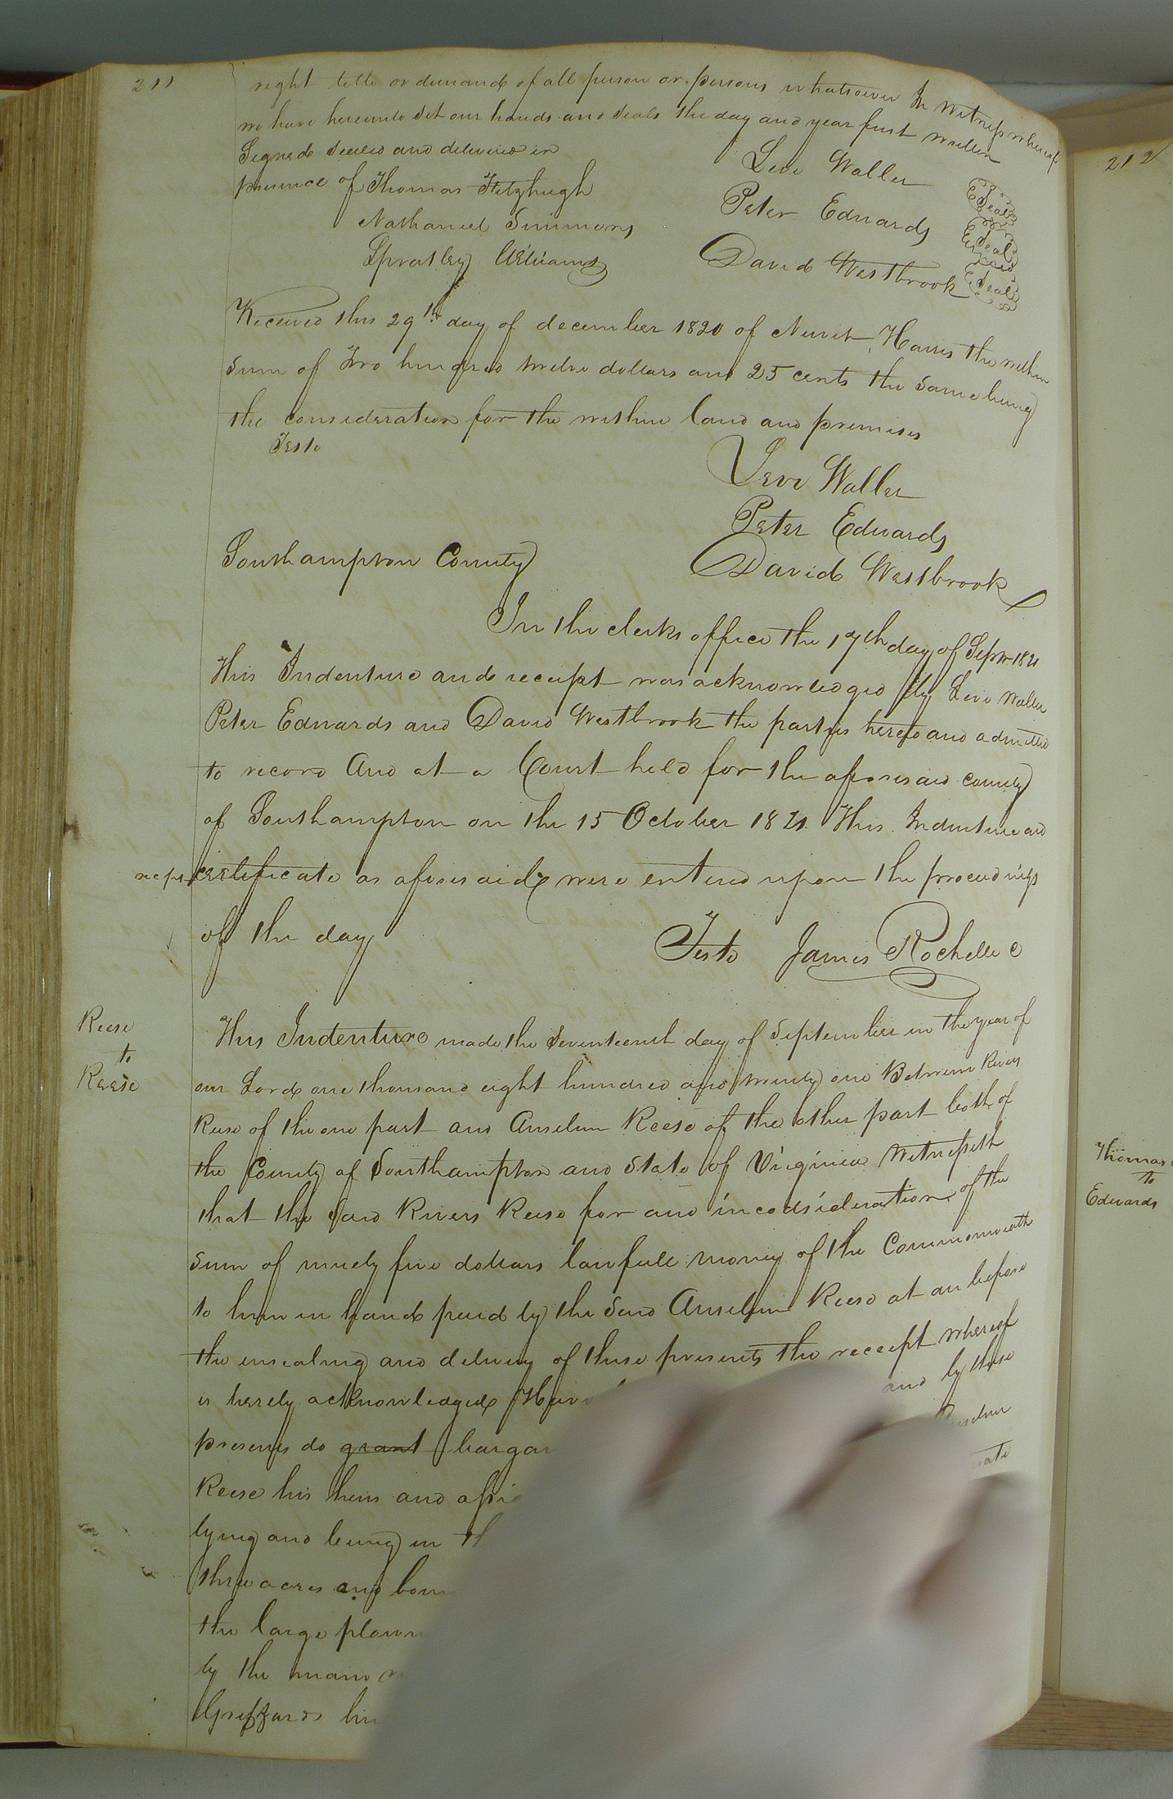 211
right title or demand of all person or persons whatsoever In witness whereof
we have hereunto set our hands and seals the day and year first written
Signed sealed and delivered in
presence of Thomas Fitzhugh
Nathaniel Simmons
Spratley Williams
Levi Waller Seal
Peter Edwards Seal
David Westbrook Seal
Received this 29th day of december 1820 of Newit Harris the within
sum of Two hundred twelve dollars and 25 cents the same being
the consideration for the within land and premises
Teste
Levi Waller
Peter Edwards
David Westbrook
Southampton County
In the clerks office the 17th day of Septr 1821
This Indenture and receipt was acknowledged by Levi Waller
Peter Edwards and David Westbrook the parties hereto and admitted
to record And at a Court held for the aforesaid county
of Southampton on the 15 October 1821 This Indenture and
certificate as aforesaid were entered upon the proceedings
of the day
Teste James Rochelle C
Reese
to
Reese
This Indenture made the seventeenth day of September in the year of
our Lord one thousand eight hundred and twenty one Between Rivers
Reese of the one part and Anselm Reese of the other part both of
the County of Southampton and State of Virginia Witnesseth
that the said Rivers Reese for and in cosideration of the
sum of ninety five dollars lawfull money of the Commonwealth
to him in hand paid by the said Anselm Reese at an before
the ensealing and delivery of these presents the receept whereof
is hereby acknowledged Have and by these
presents do grant bargan Anselm
Reese his heirs and assig
lying and being in th
three acres and boun
the large
by the main
Grizzards lin
212
Thomas
to
Edwards